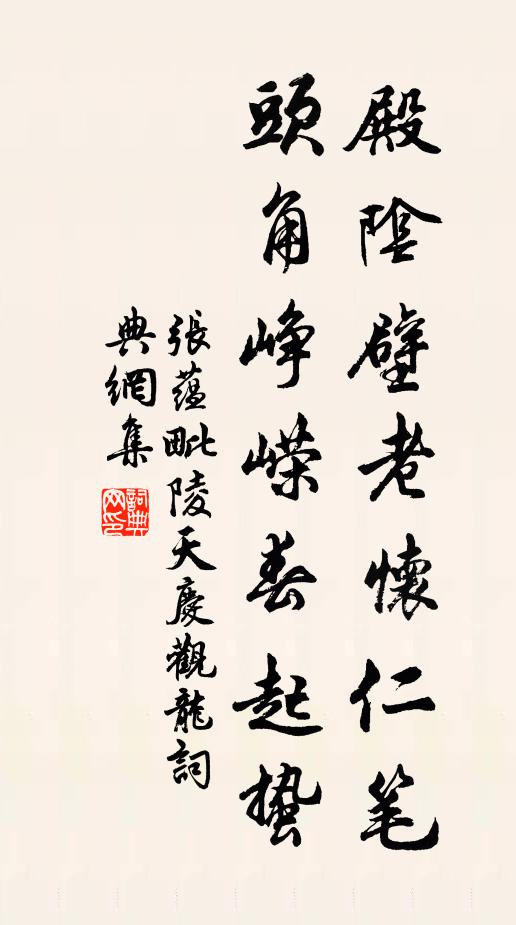 殿陰壁老懷仁笔
頭角崢嶸春起蟄
張蘊毗陵天慶觀龍詞
典網集
詞典
网印